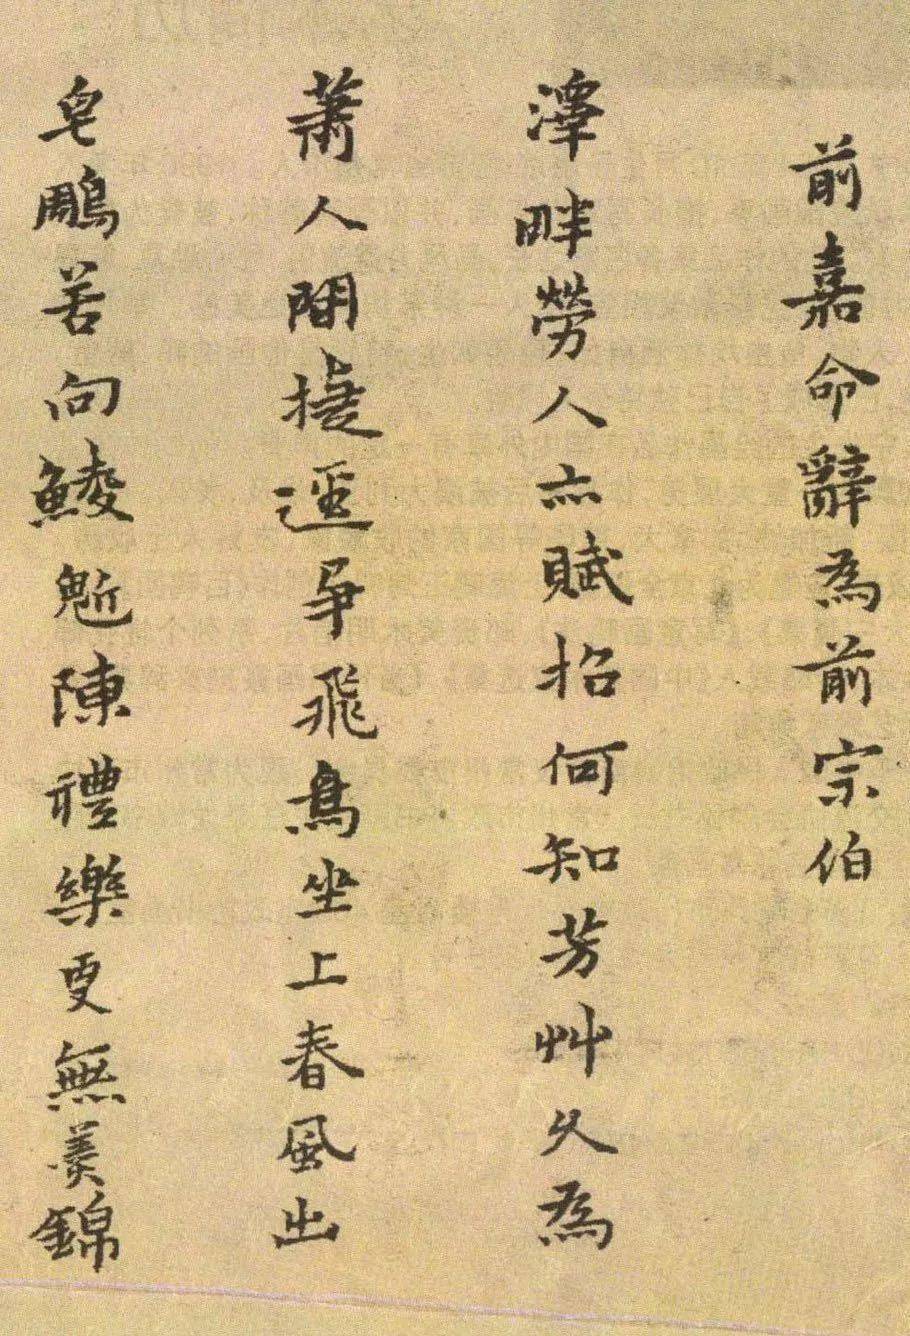 前嘉命辭為前宗伯
澤畔勞人亦賦招何知芳艸久為
蕭人間捷逕爭飛鳥坐上春風出
皂鵰苦向鯪魁陳禮樂更無美錦